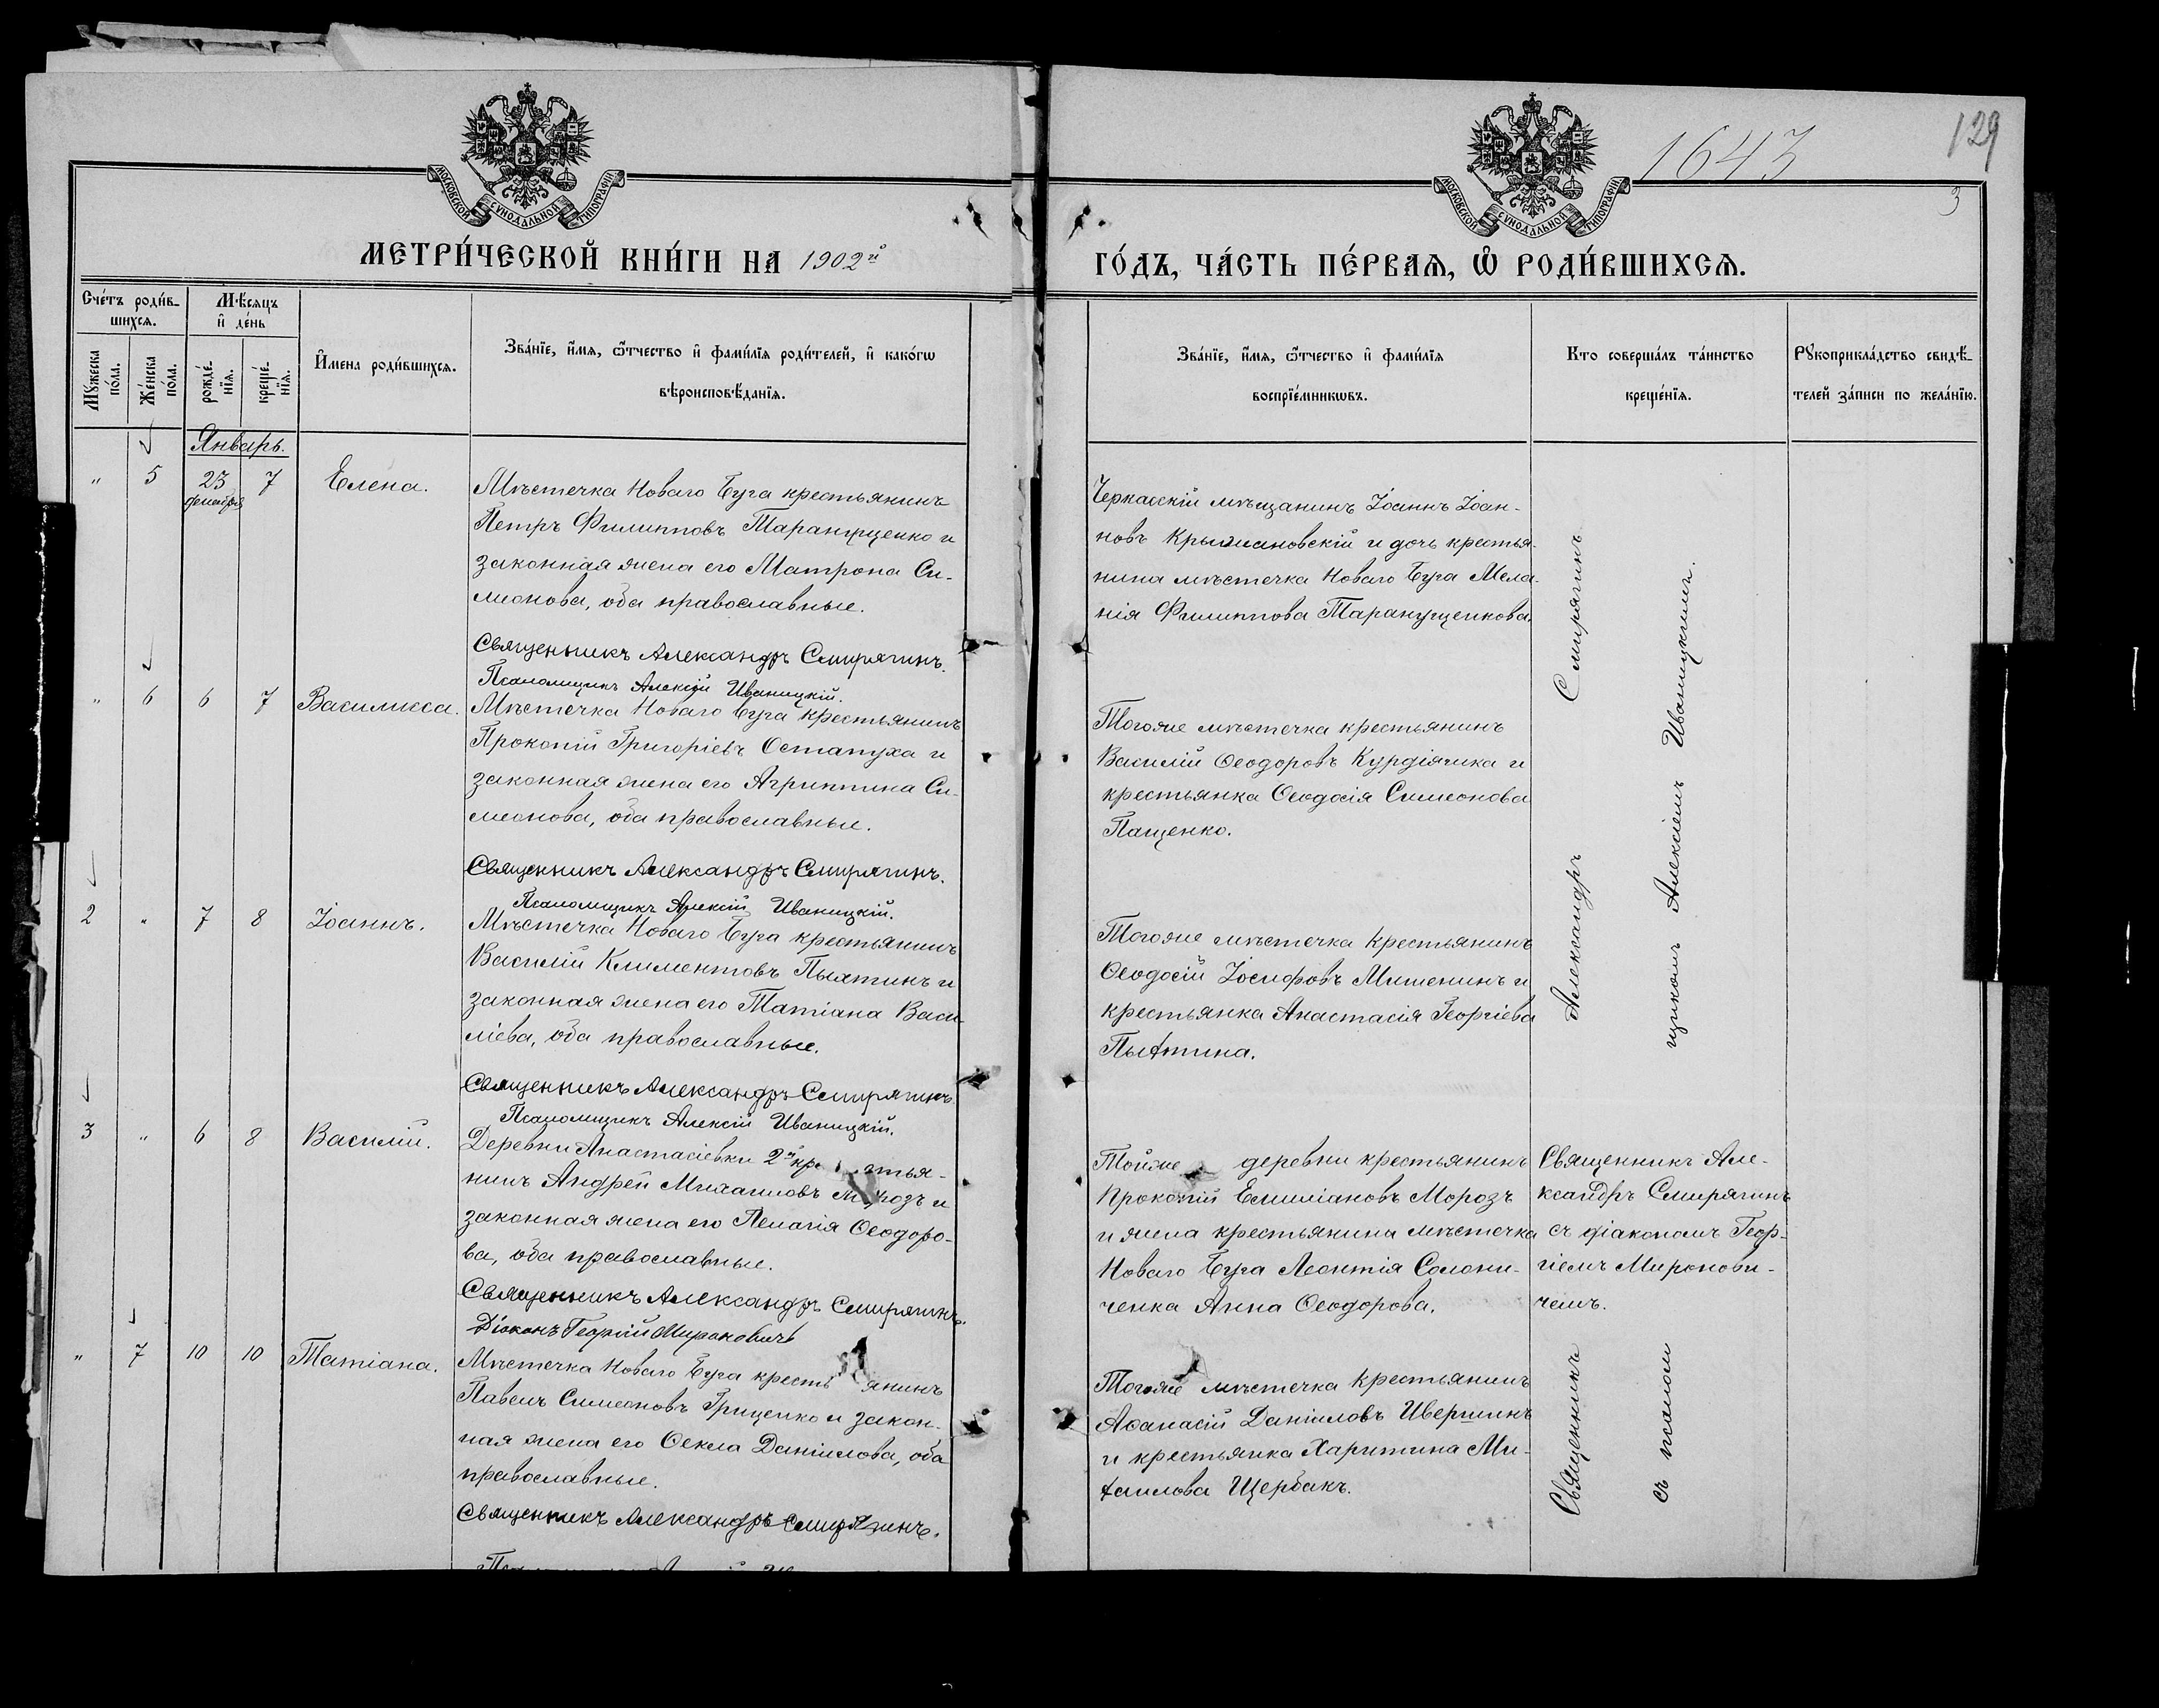 1643
129
3
МОСКОВСКОЙ СУНОДАЛЬНОЙ ТИПОГРАФІИ
МОСКОВСКОЙ СУНОДАЛЬНОЙ ТИПОГРАФІИ
МЕТРИ́ЧЕСКОЙ КНИ́ГИ НА 1902й
ГО́ДЪ, ЧА́СТЬ ПЕ́РВАѦ, Ѡ РОДИ́ВШИХСѦ.
Сче́тъ роди́в-
шихсѧ.
Мꙋ́жеска по́ла.
Же́нска по́ла.
Мѣ́сѧцъ
и҆ де́нь
рожде́-нїѧ.
креще́-нїѧ.
И҆мена роди́вшихсѧ.
Зва́нїе, и҆́мѧ, ѻ҆́тчество и҆ фами́лїѧ роди́телей, и҆ како́гѡ
вѣроисповѣ́данїѧ.
Зва́нїе, и҆́мѧ, ѻ҆́тчество и҆ фами́лїѧ
воспрїе́мникѡвъ.
Кто соверша́лъ та́инство
креще́нїѧ.
Рꙋкоприкла́дство свидѣ́-
телей за́писи по жела́нїю.
Январь.
" 5 23 декабря 7 Елена.
Мѣстечка Новаго Буга крестьянинъ
Петръ Филипповъ Таранущенко и
законная жена его Матрона Си-
меонова, оба православные.
Священникъ Александръ Смирягинъ.
Псаломщикъ Алексій Иваницкій.
Черкасскій мѣщанинъ Іоаннъ Іоан-
новъ Крыжановскій и дочь крестья-
нина мѣстечка Новаго Буга Мела-
нія Филиппова Таранущенкова.
" 6 6 7 Василисса.
Мѣстечка Новаго Буга крестьянинъ
Прокопій Григоріевъ Остапуха и
законная жена его Агриппина Си-
меонова, оба православные.
Священникъ Александръ Смирягинъ.
Псаломщикъ Алексій Иваницкій.
Тогоже мѣстечка крестьянинъ
Василій Ѳеодоровъ и
крестьянка Ѳеодосія Симеонова
Пащенко.
2 " 7 8 Іоаннъ.
Мѣстечка Новаго Буга крестьянинъ
Василій Климентовъ Пыхтинъ и
законная жена его Татіана Васи-
ліева, оба православные.
Священникъ Александръ Смирягинъ.
Псаломщикъ Алексій Иваницкій.
Тогоже мѣстечка крестьянинъ
Ѳеодосій Іосифовъ Мишенинъ и
крестьянка Анастасія Георгіева
Пыхтина.
3 " 6 8 Василій.
Деревни Анастасіевки 2й крестья-
нинъ Андрей Михаиловъ Морозъ и
законная жена его Пелагія Ѳеодоро-
ва, оба православные.
Священникъ Александръ Смирягинъ.
Діаконъ Георгій Мироновичъ
Тойже деревни крестьянинъ
Прокопій Емиліановъ Морозъ
и жена крестьянина мѣстечка
Новаго Буга Леонтія Солони-
ченка Анна Ѳеодорова.
Священникъ Але-
ксандръ Смирягинъ
съ діакономъ Геор-
гіемъ Миронови-
чемъ.
" 7 10 10 Татіана.
Мѣстечка Новаго Буга крестьянинъ
Павелъ Симеоновъ Гриценко и закон-
ная жена его Ѳекла Даніилова, оба
православные.
Священникъ Александръ Смирягинъ.
Тогоже мѣстечка крестьянинъ
Аѳанасій Даніиловъ Ивершинъ
и крестьянка Харитина Ми-
хаилова Щербакъ.
Священникъ Александръ Смирягинъ
съ псаломщикомъ Алексіемъ Иваницкимъ.